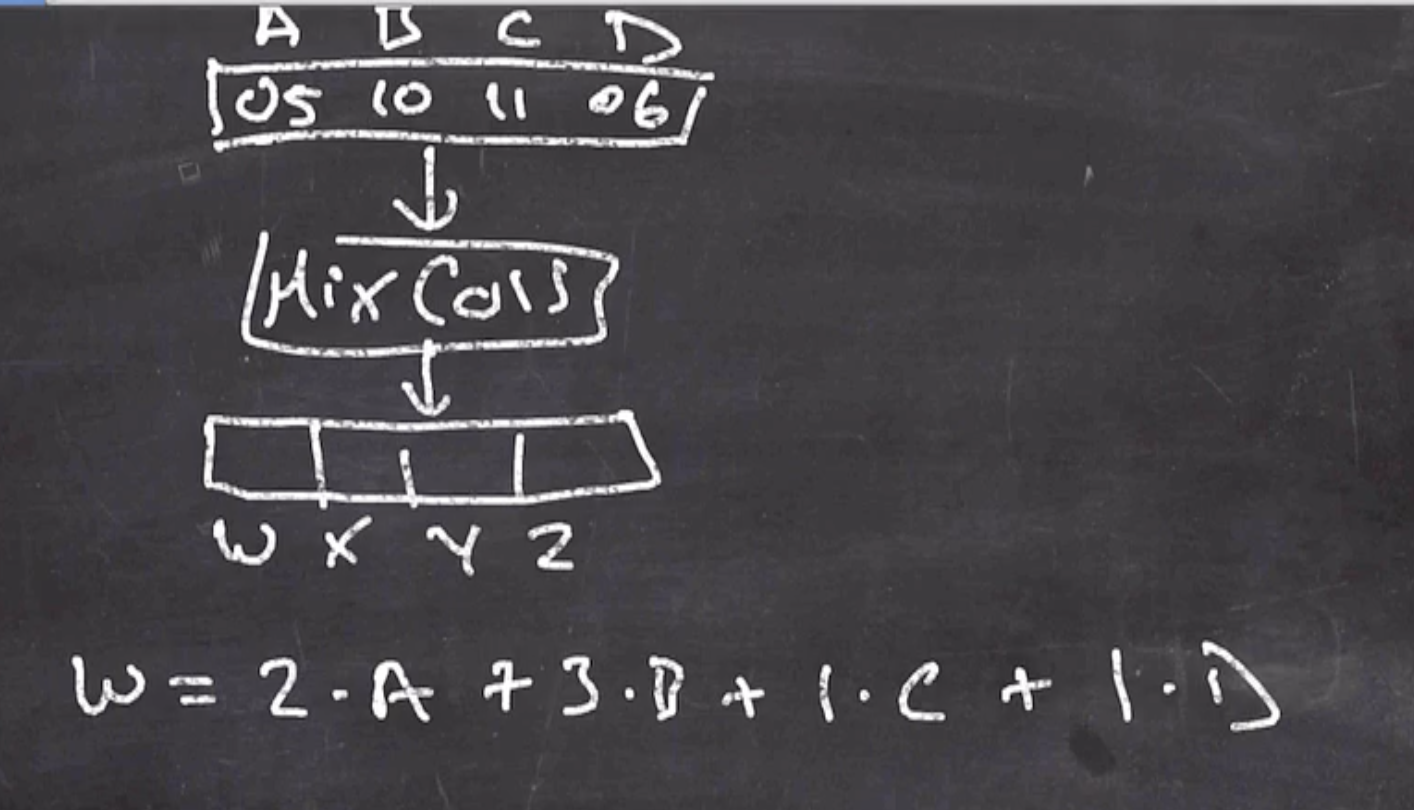 A B C D
05 10 11 06
Mix Cols
W X Y Z
W = 2 · A + 3 · B + 1 · C + 1 · D